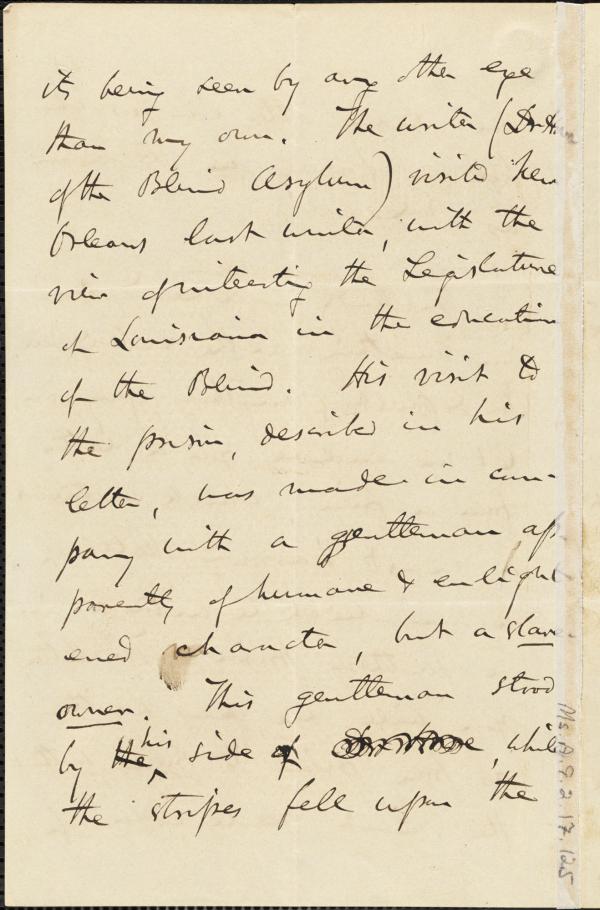 its being seen by any other eye
than my own. The writer (Dr.
of the Blind Asylum) visited New
Orleans last winter, with the
view of interesting the Legislature
of Louisiana in the education
of the Blind. His visit to
the prison, described in his
letter, was made in com-
pany with a gentleman ap
parently of humane & enlight
ened character, but a slave
owner. This gentleman stood
by the his side of , while
the stripes fell upon the
Ms.A.9.2.17.125